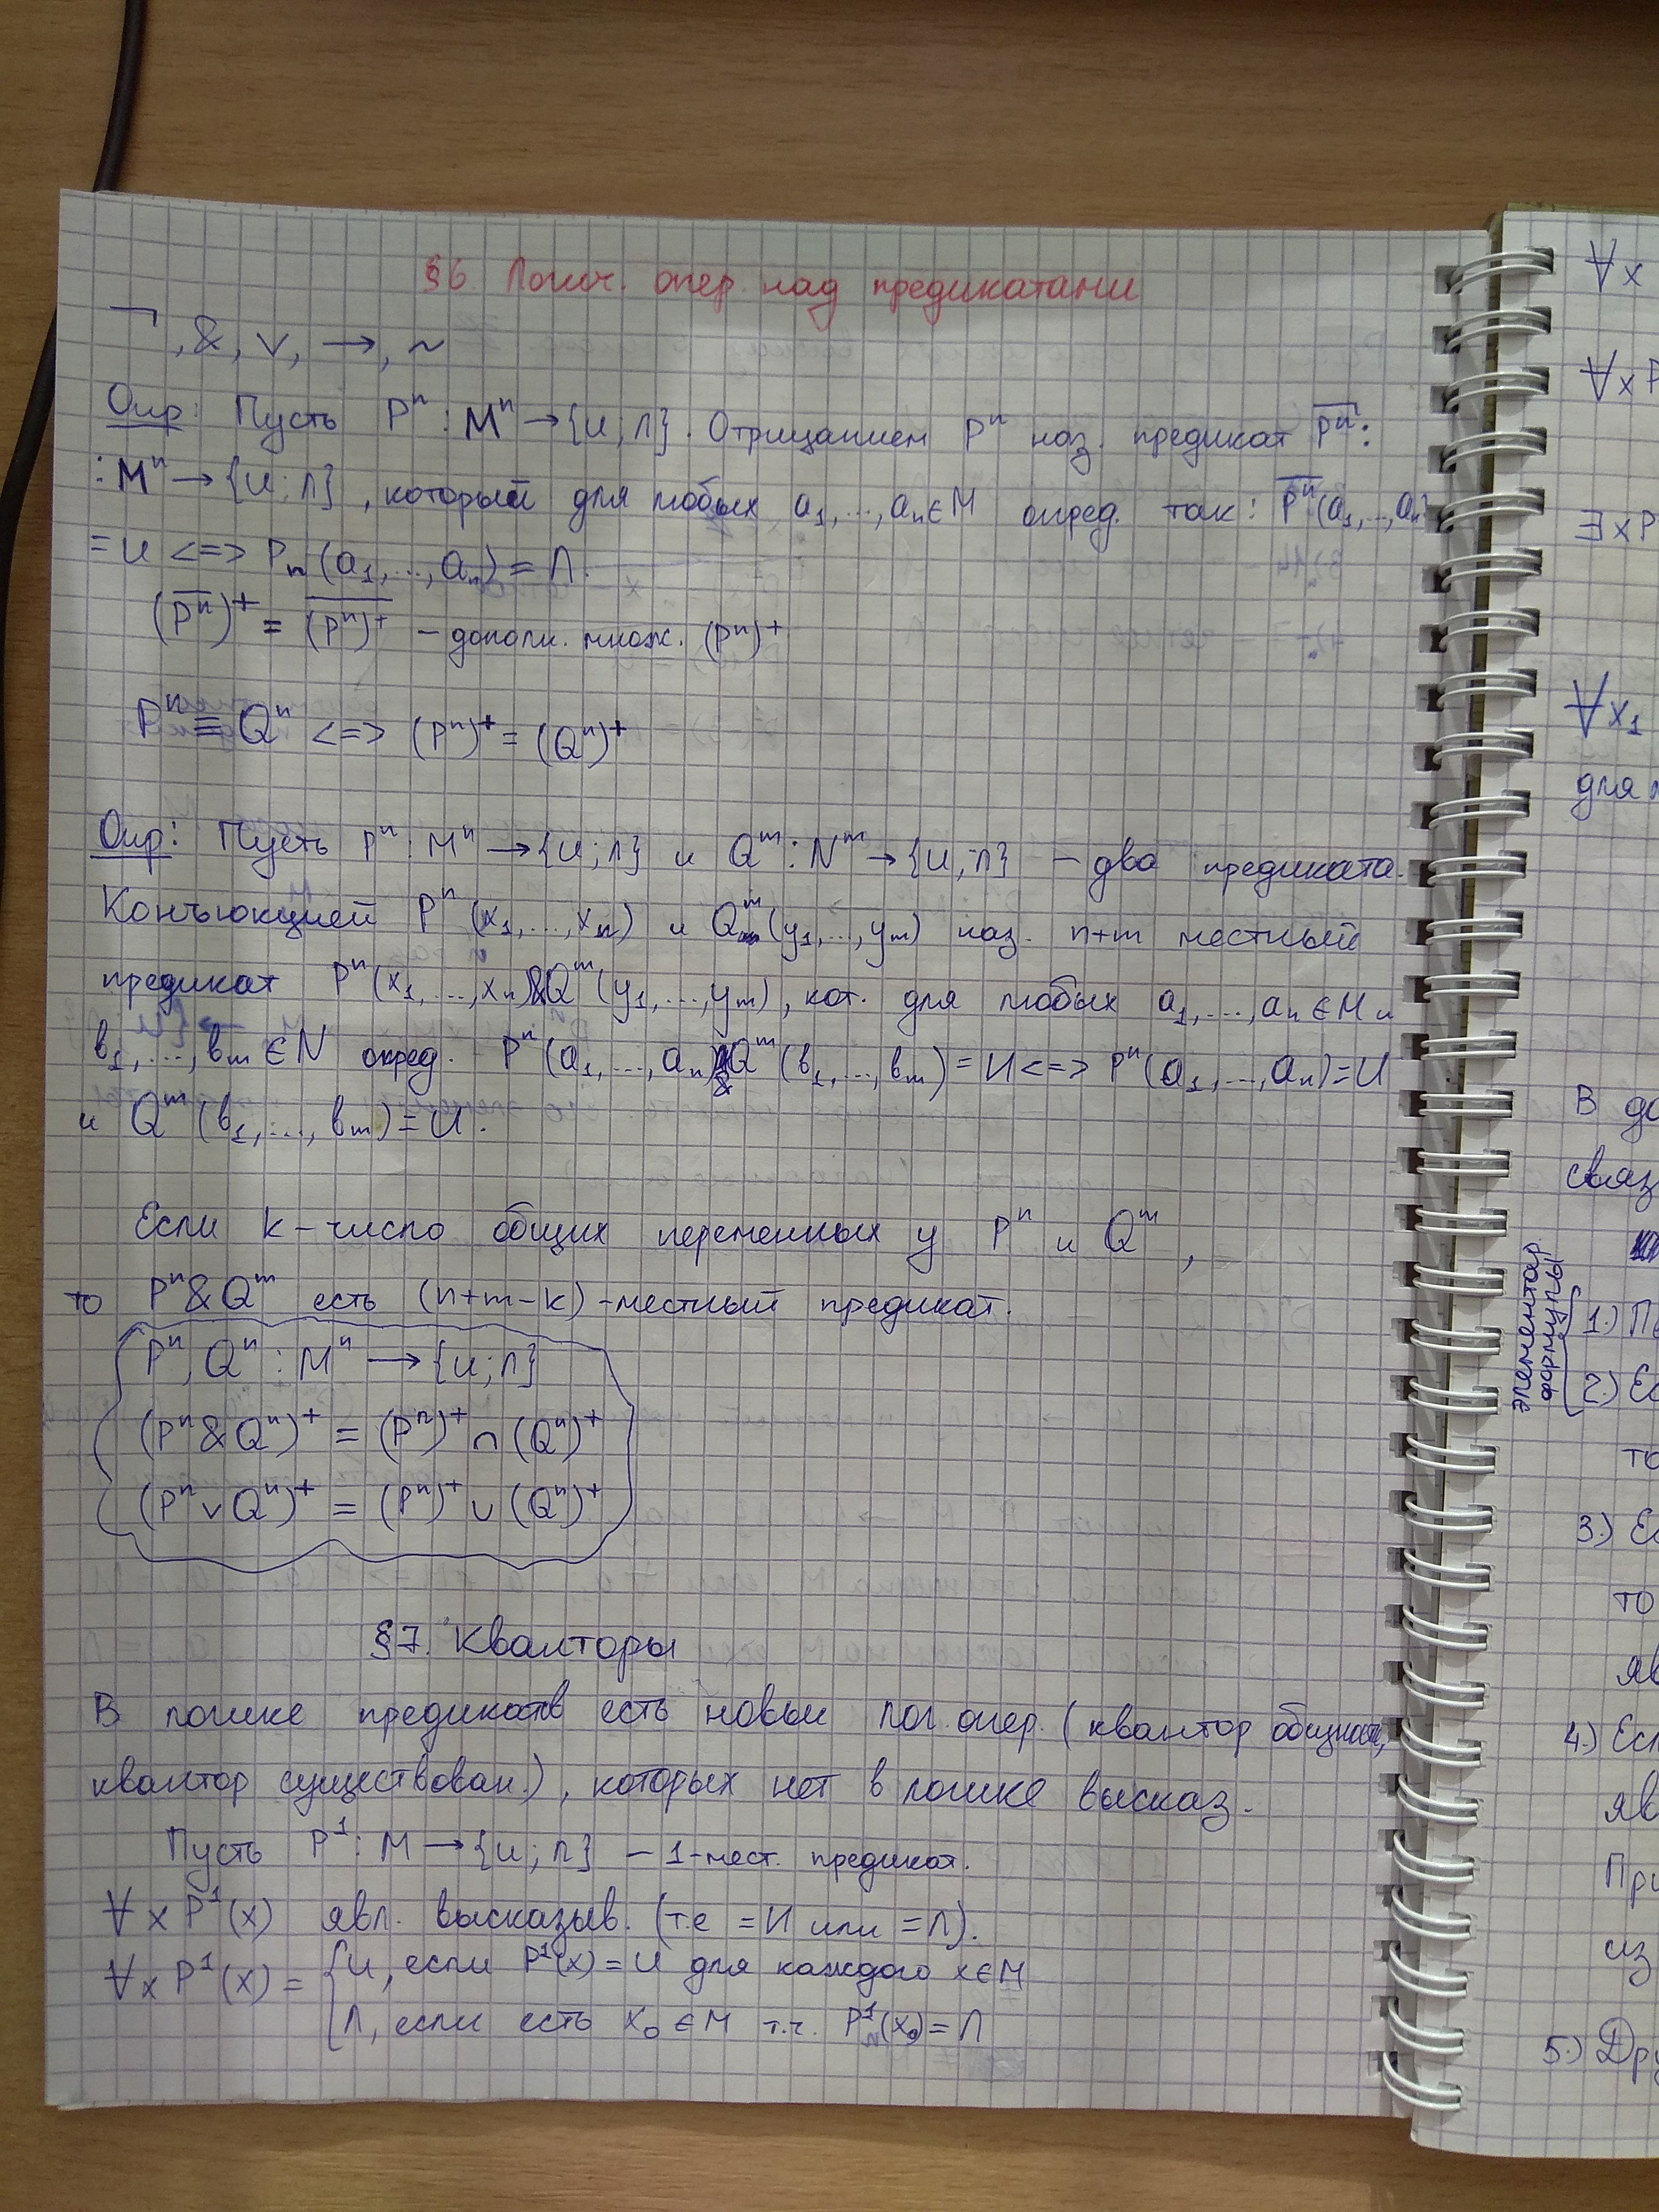 §6 Логич. опер. над предикатами
¬, &, ∨, →, ~
Опр: Пусть Pⁿ : Mⁿ → {и; л}. Отрицанием Pⁿ наз. предикат P̅ⁿ̅ :
: Mⁿ → {и; л}, который для любых a₁,...,aₙ∈M опред. так: P̅ⁿ̅(a₁,...,aₙ)
= и <=> Pₙ(a₁,...,aₙ) = л.
(P̅ⁿ̅)⁺ = \overline{(Pⁿ)⁺} – дополн. множ. (Pⁿ)⁺
Pⁿ ≡ Qⁿ <=> (Pⁿ)⁺ = (Qⁿ)⁺
Опр: Пусть Pⁿ : Mⁿ → {и; л} и Qᵐ : Nᵐ → {и; л} – два предиката.
Конъюкцией Pⁿ(x₁,...,xₙ) и Qᵐ(y₁,...,yₘ) наз. n+m местный
предикат Pⁿ(x₁,...,xₙ)&Qᵐ(y₁,...,yₘ), кот. для любых a₁,...,aₙ∈M и
в₁,...,вₘ∈N опред. Pⁿ(a₁,...,aₙ)&Qᵐ(в₁,...,вₘ) = И <=> Pⁿ(a₁,...,aₙ)=И
и Qᵐ(в₁,...,вₘ) = И.
Если k – число общих переменных у Pⁿ и Qᵐ,
то Pⁿ&Qᵐ есть (n+m−k)-местный предикат.
Pⁿ, Qⁿ : Mⁿ → {и; л}
(Pⁿ&Qⁿ)⁺ = (Pⁿ)⁺ ∩ (Qⁿ)⁺
(Pⁿ∨Qⁿ)⁺ = (Pⁿ)⁺ ∪ (Qⁿ)⁺
§7. Кванторы
В логике предикатов есть новые лог. опер. (квантор общности,
квантор существован.), которых нет в логике высказ.
Пусть P¹ : M → {и; л} – 1-мест. предикат.
∀x P¹(x) явл. высказыв. (т.е = И или = Л).
∀x P¹(x) = { И, если P¹(x) = И для каждого x∈M
Л, если есть x₀∈M т.ч. P¹(x₀) = Л
∀x
∀x P
∃x P
∀x₁
для
В
связ
элементар.
формулы
1.)
2.) Ес
то
3.) Ес
то
яв
4.) Есл
яв
При
из
5.) Дру